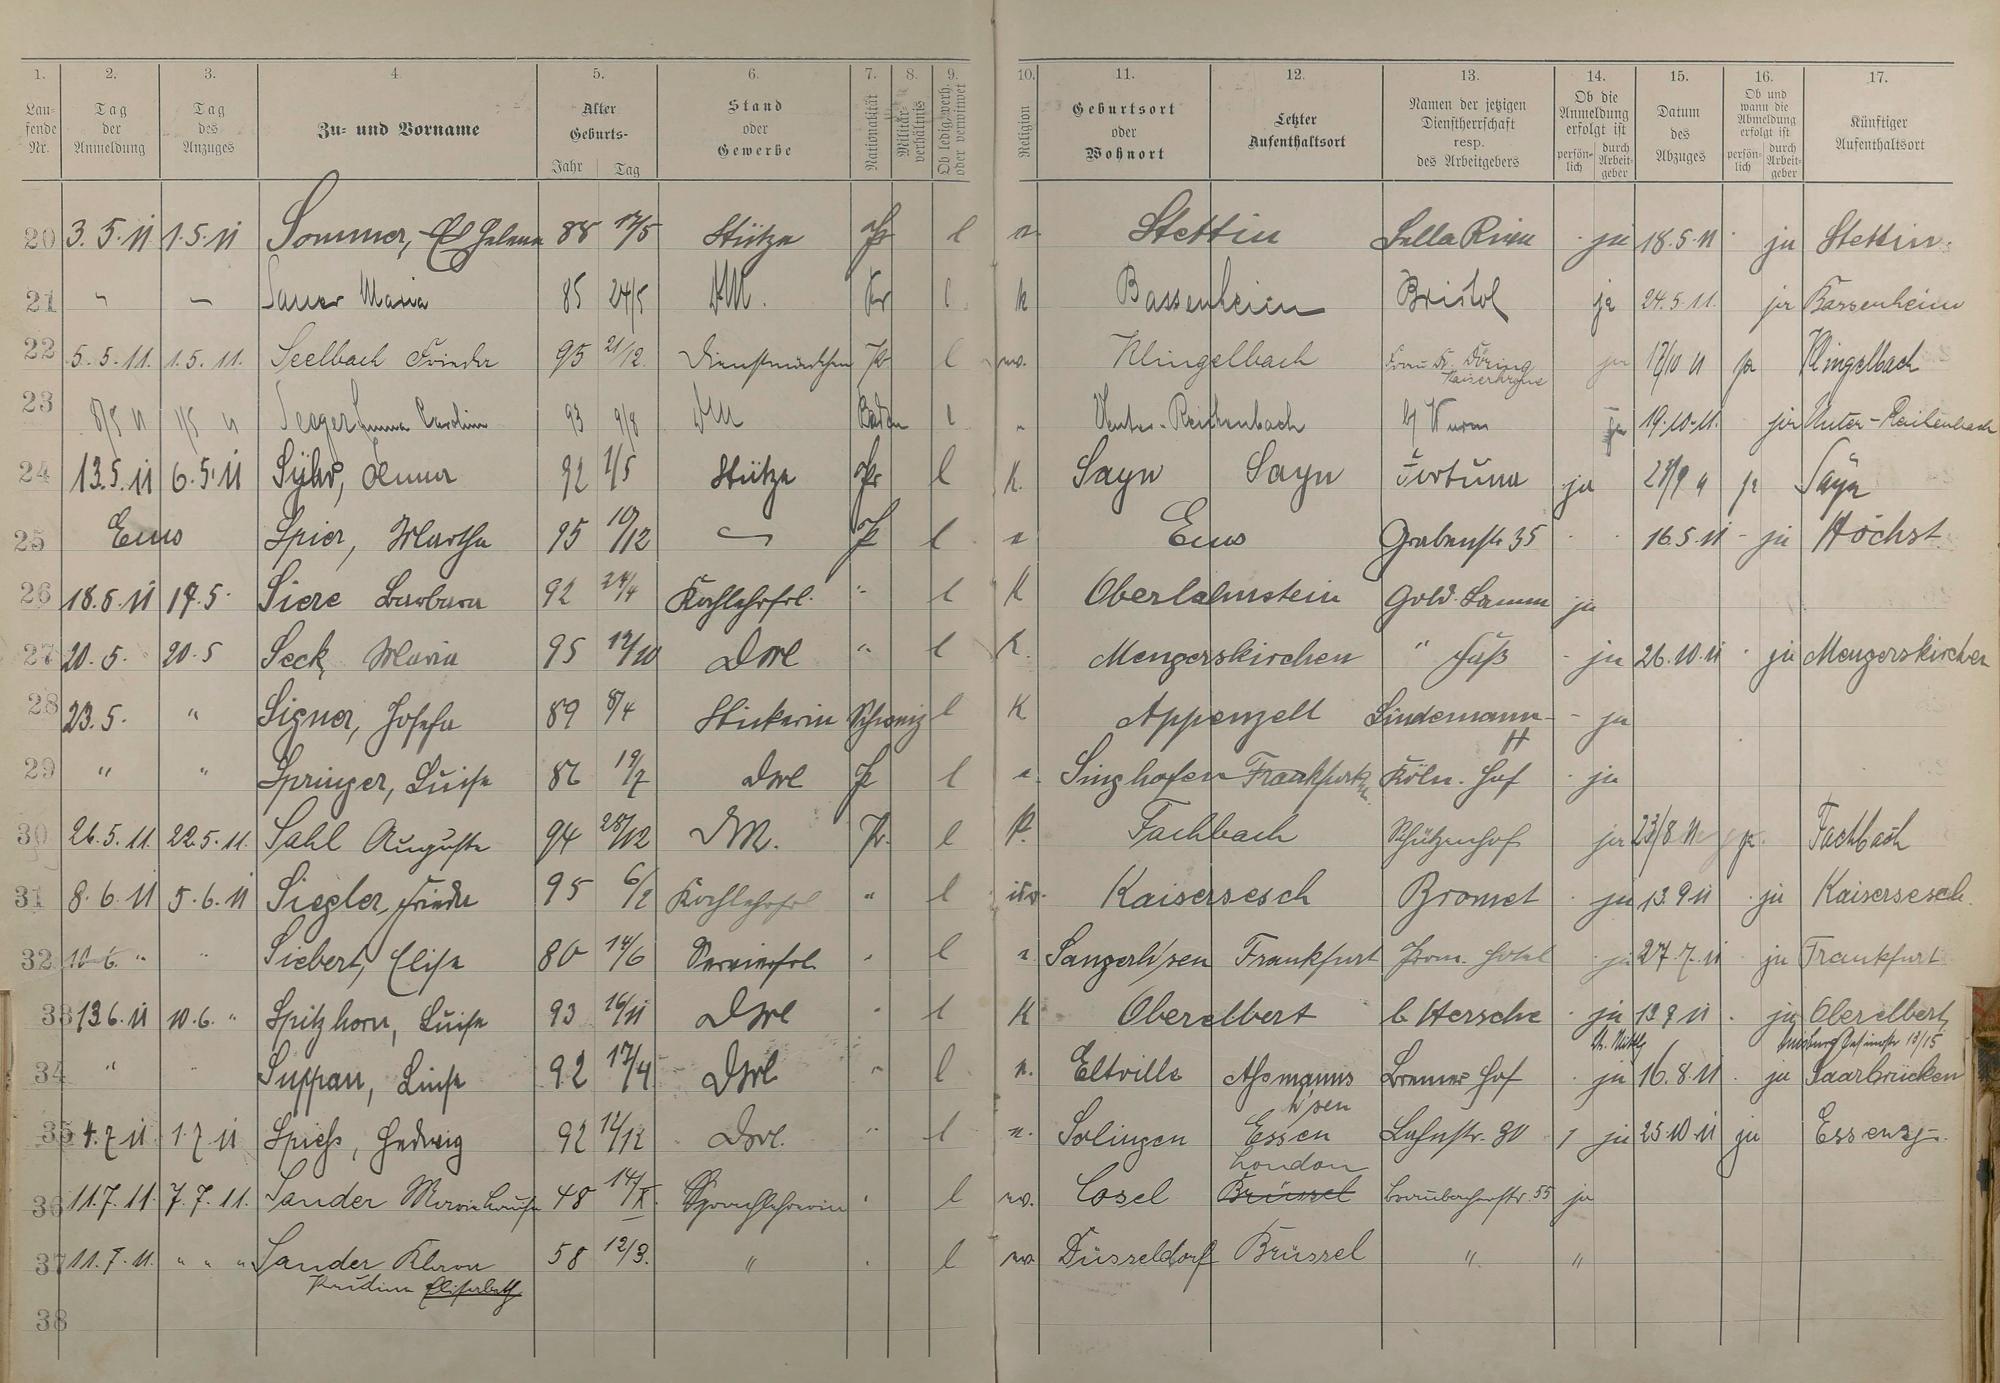 1. 2. 3. 4. 5. 6. 7. 8. 9. 10. 11. 12. 13. 14. 15. 16. 17.
Lau-fende Nr. Tag der Anmeldung Tag des Anzuges Zu- und Vorname Alter Geburts- Jahr Tag Stand oder Gewerbe Nationalität Militär-verhältnis Ob ledig, verh. oder verwitwet Religion Geburtsort oder Wohnort Letzter Aufenthaltsort Namen der jetzigen Dienstherrschaft resp. des Arbeitgebers Ob die Anmeldung erfolgt ist persön-lich durch Arbeit-geber Datum des Abzuges Ob und wann die Abmeldung erfolgt ist persön-lich durch Arbeit-geber Künftiger Aufenthaltsort
20 3. 5. 11 1. 5. 11 Sommer, Helene 88 17/5 Stütze Pr l Stettin Bella Riva ja 18. 5. 11 ja Stettin
21 " — Sauer Maria 85 24/5 DM. Pr l k Bassenheim Bristol ja 24. 5. 11. ja Bassenheim
22 5. 5. 11. 1. 5. 11. Seelbach Frieda 95 21/12. Dienstmädchen Pr l ev. Klingelbach Frau Dr. Döring ja 17/10 11 ja Klingelbach
23 8/5 11 1/5 11 Seeger Emma Caroline 93 9/8 DM Baden l " Unter-Reichenbach ja 19. 10. 11. ja Unter-Reichenbach
24 13. 5. 11 6. 5. 11 Anna 92 1/5 Stütze Pr l k. Sayn Sayn Fortuna ja 29/9 11 ja Sayn
25 Ems Spier, Martha 95 10/12 — Pr l Ems Grabenstr 35 16. 5. 11 - ja Höchst
26 18. 5. 11 17. 5. Siere Barbara 92 24/4 Kochlehrfrl. " l K Oberlahnstein Gold. Lamm ja
27 20. 5. 20. 5 Seck Maria 95 19/10 Dml " l k. Mengerskirchen " Faß - ja 26. 10. 11 ja Mengerskirchen
28 23. 5. " Signer, Josefa 89 8/4 Stickerin Schweiz l K Appenzell Lindemann - ja
29 " " Springer, Luise 86 19/7 Dml Pr l Singhofen Frankfurt Köln. Hof ja
30 26. 5. 11. 22. 5. 11. Sahl Auguste 94 28/12 DM. Pr. l k. Fachbach Schützenhof ja 23/8 11 ja. Fachbach
31 8. 6. 11 5. 6. 11 Siegler, Frieda 95 6/2 Kochlehrfrl " l Kaisersesch Bromet ja 13 9 11 ja Kaisersesch.
32 10 6. " " Siebert, Elise 80 14/6 Servierfrl. " l Sangerh'sen Frankfurt Prom. Hotel ja 27. 7. 11 ja Frankfurt
33 13 6. 11 10. 6. " Spitzhorn, Luise 93 16/11 Dml " l K Oberelbert b Hersche ja 13 9 11 ja Oberelbert
34 " " Suppan, Luise 92 17/4 Dml " l Eltville Aßmanns Bremer Hof ja 16. 8. 11. ja Saarbrücken
h'sen
35 4. 7 11 1. 7 11 Spieß, Hedwig 92 Dml. " l Solingen Essen Lahnstr. 30 ja 25 10 11 ja Essen
London
36 11. 7. 11. 7. 7. 11. Sander Marie Luise 48 14/X. Sprachlehrerin " l ev. Cosel Brüssel 55 ja
37 11. 7. 11. " " " Sander Klara 58 12/3. " " l ev. Düsseldorf Brüssel " "
Elisabeth
38